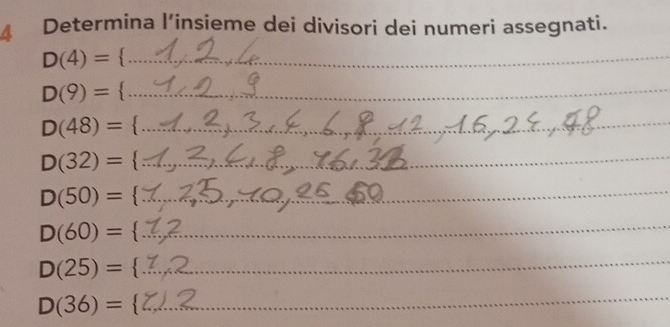 4 Determina l'insieme dei divisori dei numeri assegnati.
D(4) = {1, 2, 4
D(9) = {1, 2, 9
D(48) = {1, 2, 3, 4, 6, 8, 12, 16, 24, 48
D(32) = {1, 2, 4, 8, 16, 32
D(50) = {1, 2, 5, 10, 25 50
D(60) = {1, 2
D(25) = {1, 2
D(36) = {1, 2